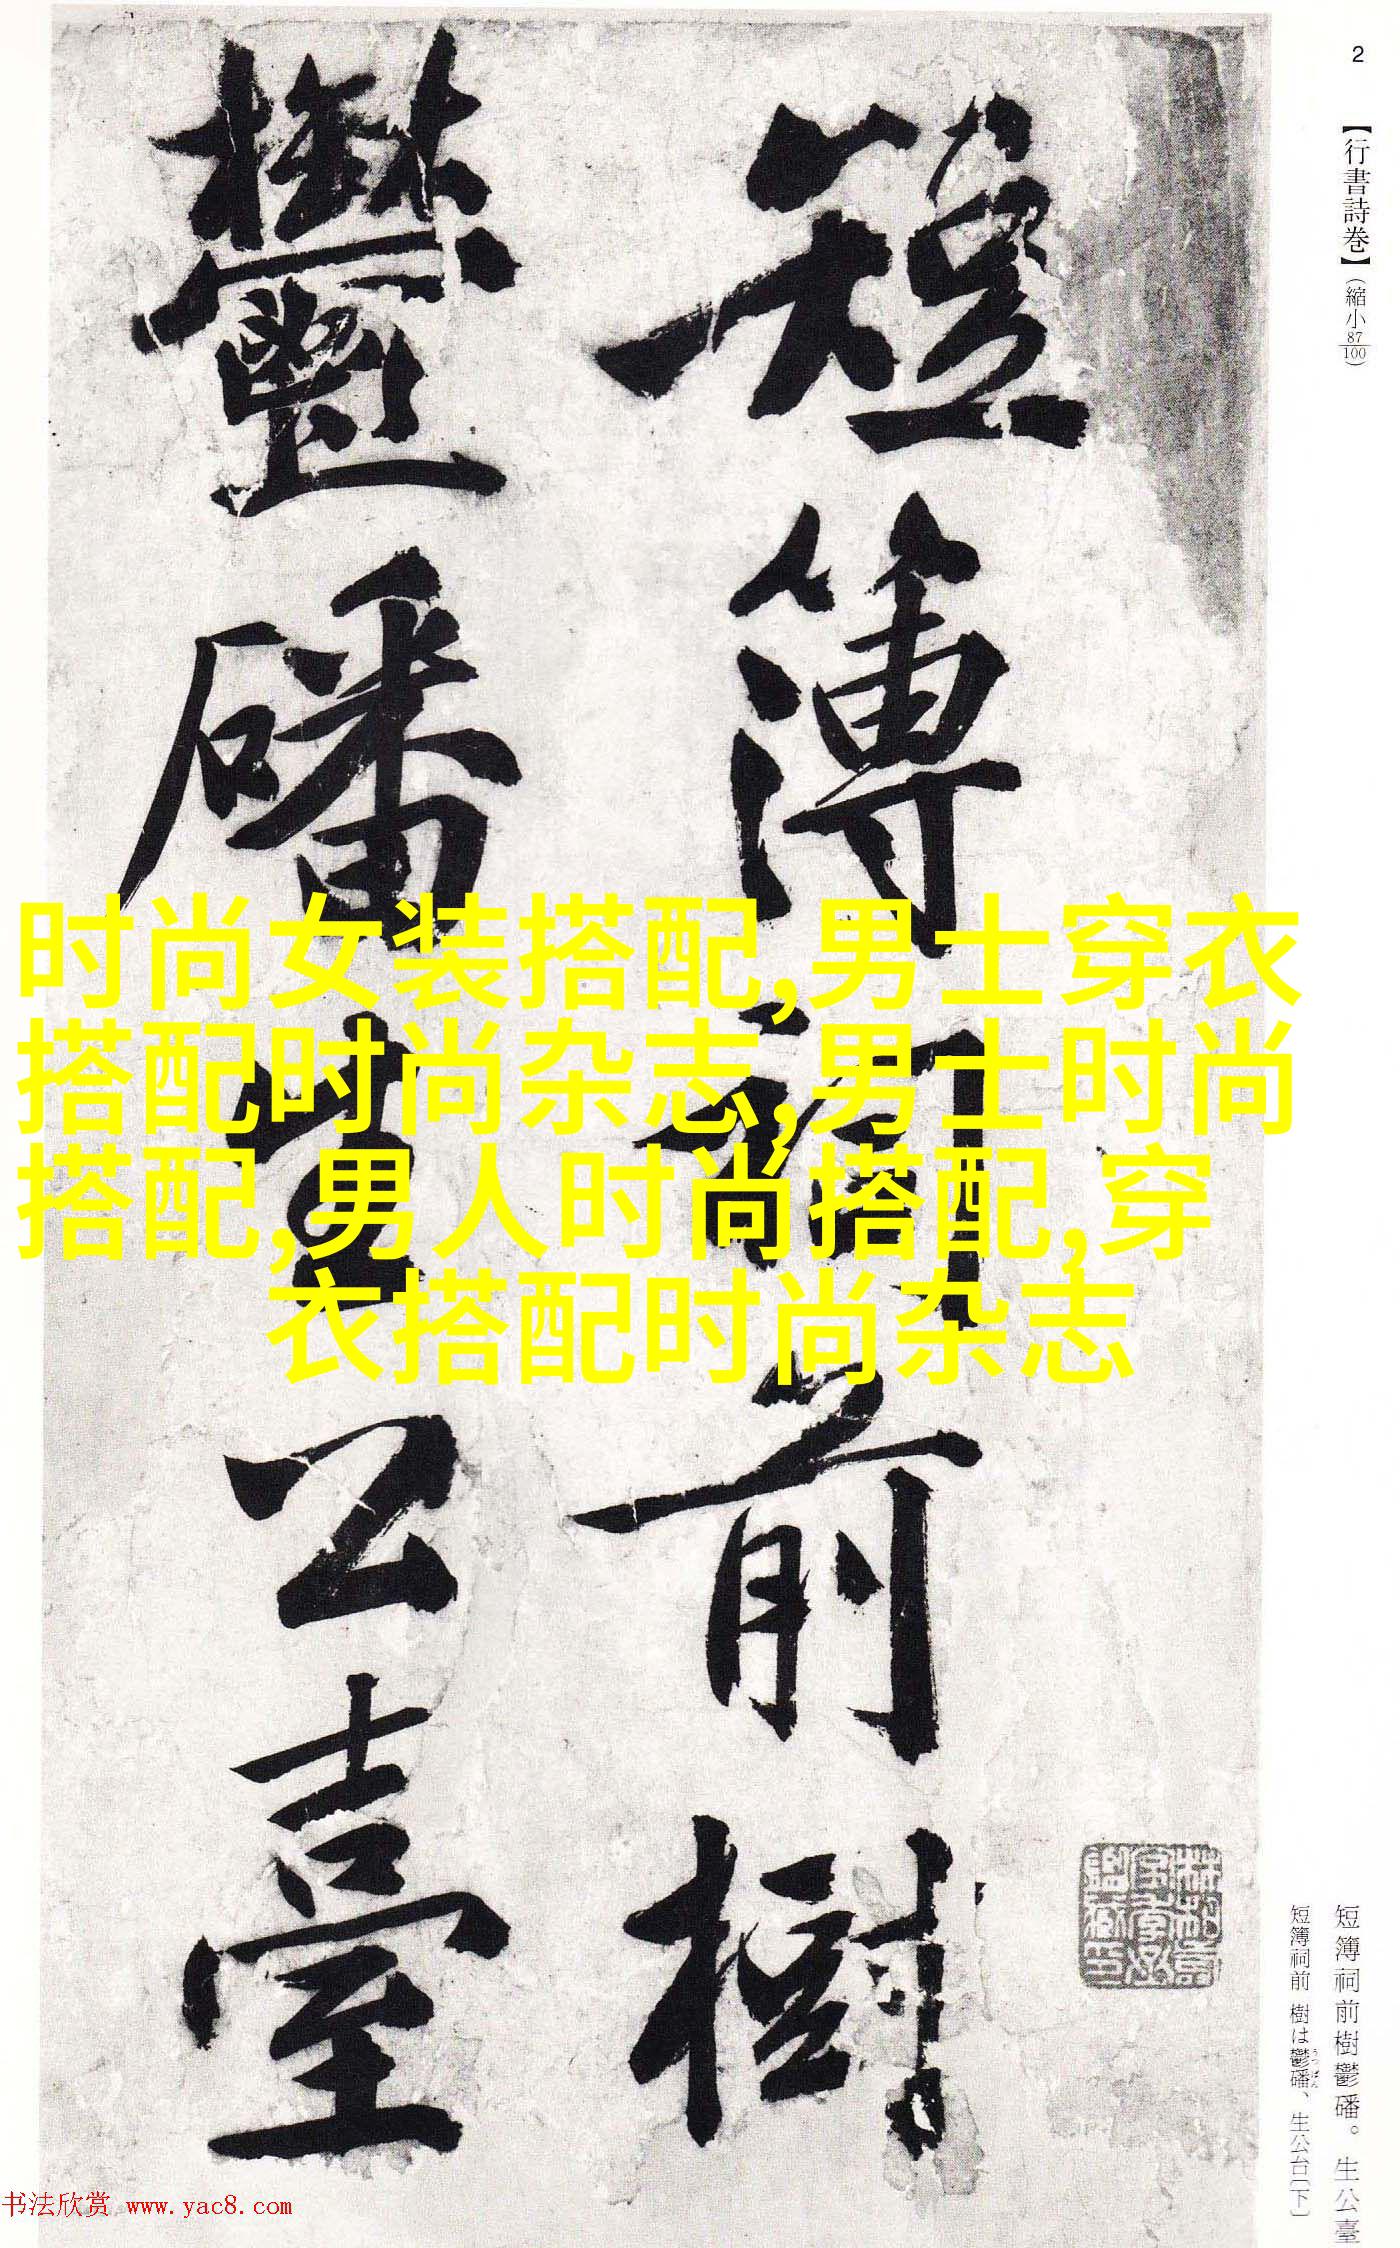 2
【行書詩卷】(縮小87/100)
短簿祠前樹
鬱磻生公臺
时尚女装搭配,男士穿衣
搭配时尚杂志,男士时尚
搭配,男人时尚搭配,穿
衣搭配时尚杂志
短簿祠前樹鬱磻。生公臺
短簿祠前 樹は鬱磻、生公台〔下〕
うつばん
书法欣赏 www.yac8.com